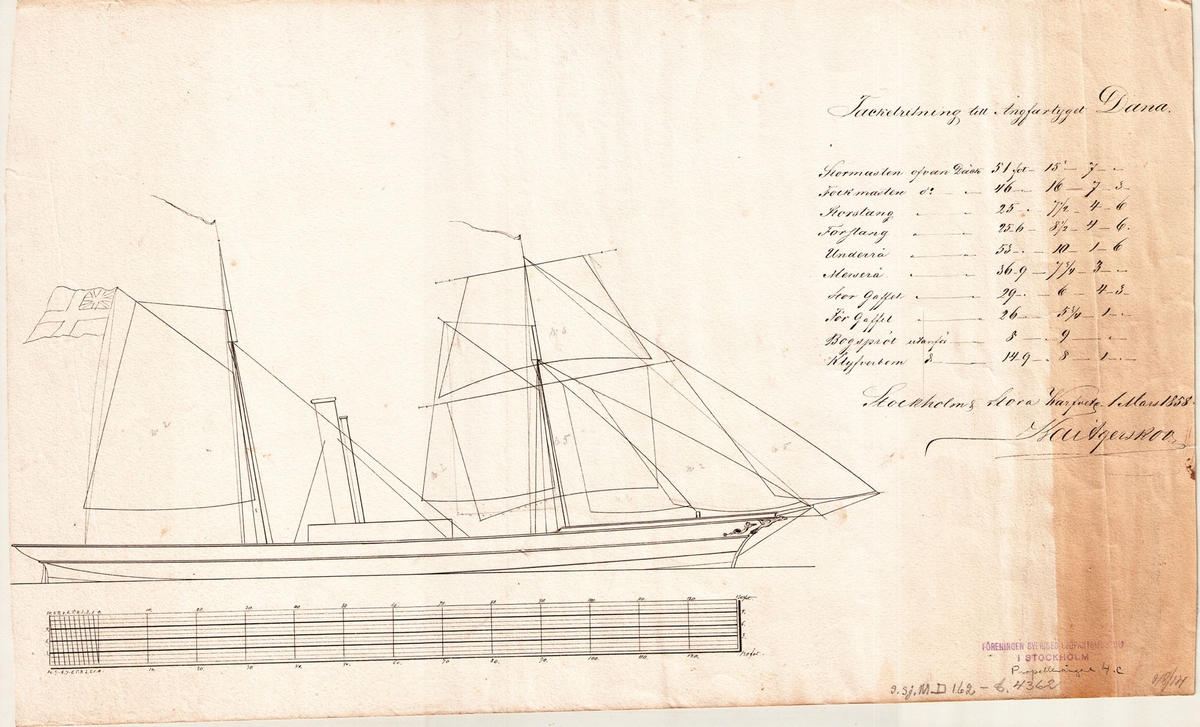 Tackelritning till Ångfartyget Dana.
Stormasten ofvan Däck 51 fot — 15" — 7 — „
Fockmasten do „ 46 „ — 16 — 7 — 3
Storstang „ „ 25 „ — 7 1/2 — 4 — 6
Förstang „ „ 25.6 — 8 1/2 — 4 — 6.
Underrå „ „ 53 — „ — 10 — 1 — 6
Merserå „ „ 36.9 — 7 3/4 — 3 — „
Stor Gaffel „ „ 29 — „ — 6 — 4 — 3
För Gaffel „ „ 26 — 5 3/4 — 1 — „
Bogspröt utanför 8 — 9 — „
Klyfverbom d 14.9 — 8 — 1 — „
Stockholm & Stora Varfvet 1 Mars 1858
10. 20. 30. 40. 50. 60. 70. 80. 90. 100. 110. 120. 130
10. 20. 30. 40. 50. 60. 70. 80. 90. 100. 110. 120.
FÖRENINGEN SVERIGES SJÖFARTSMUSEUM
I STOCKHOLM
4.C
S.Sj.M. D 162 — S. 4362